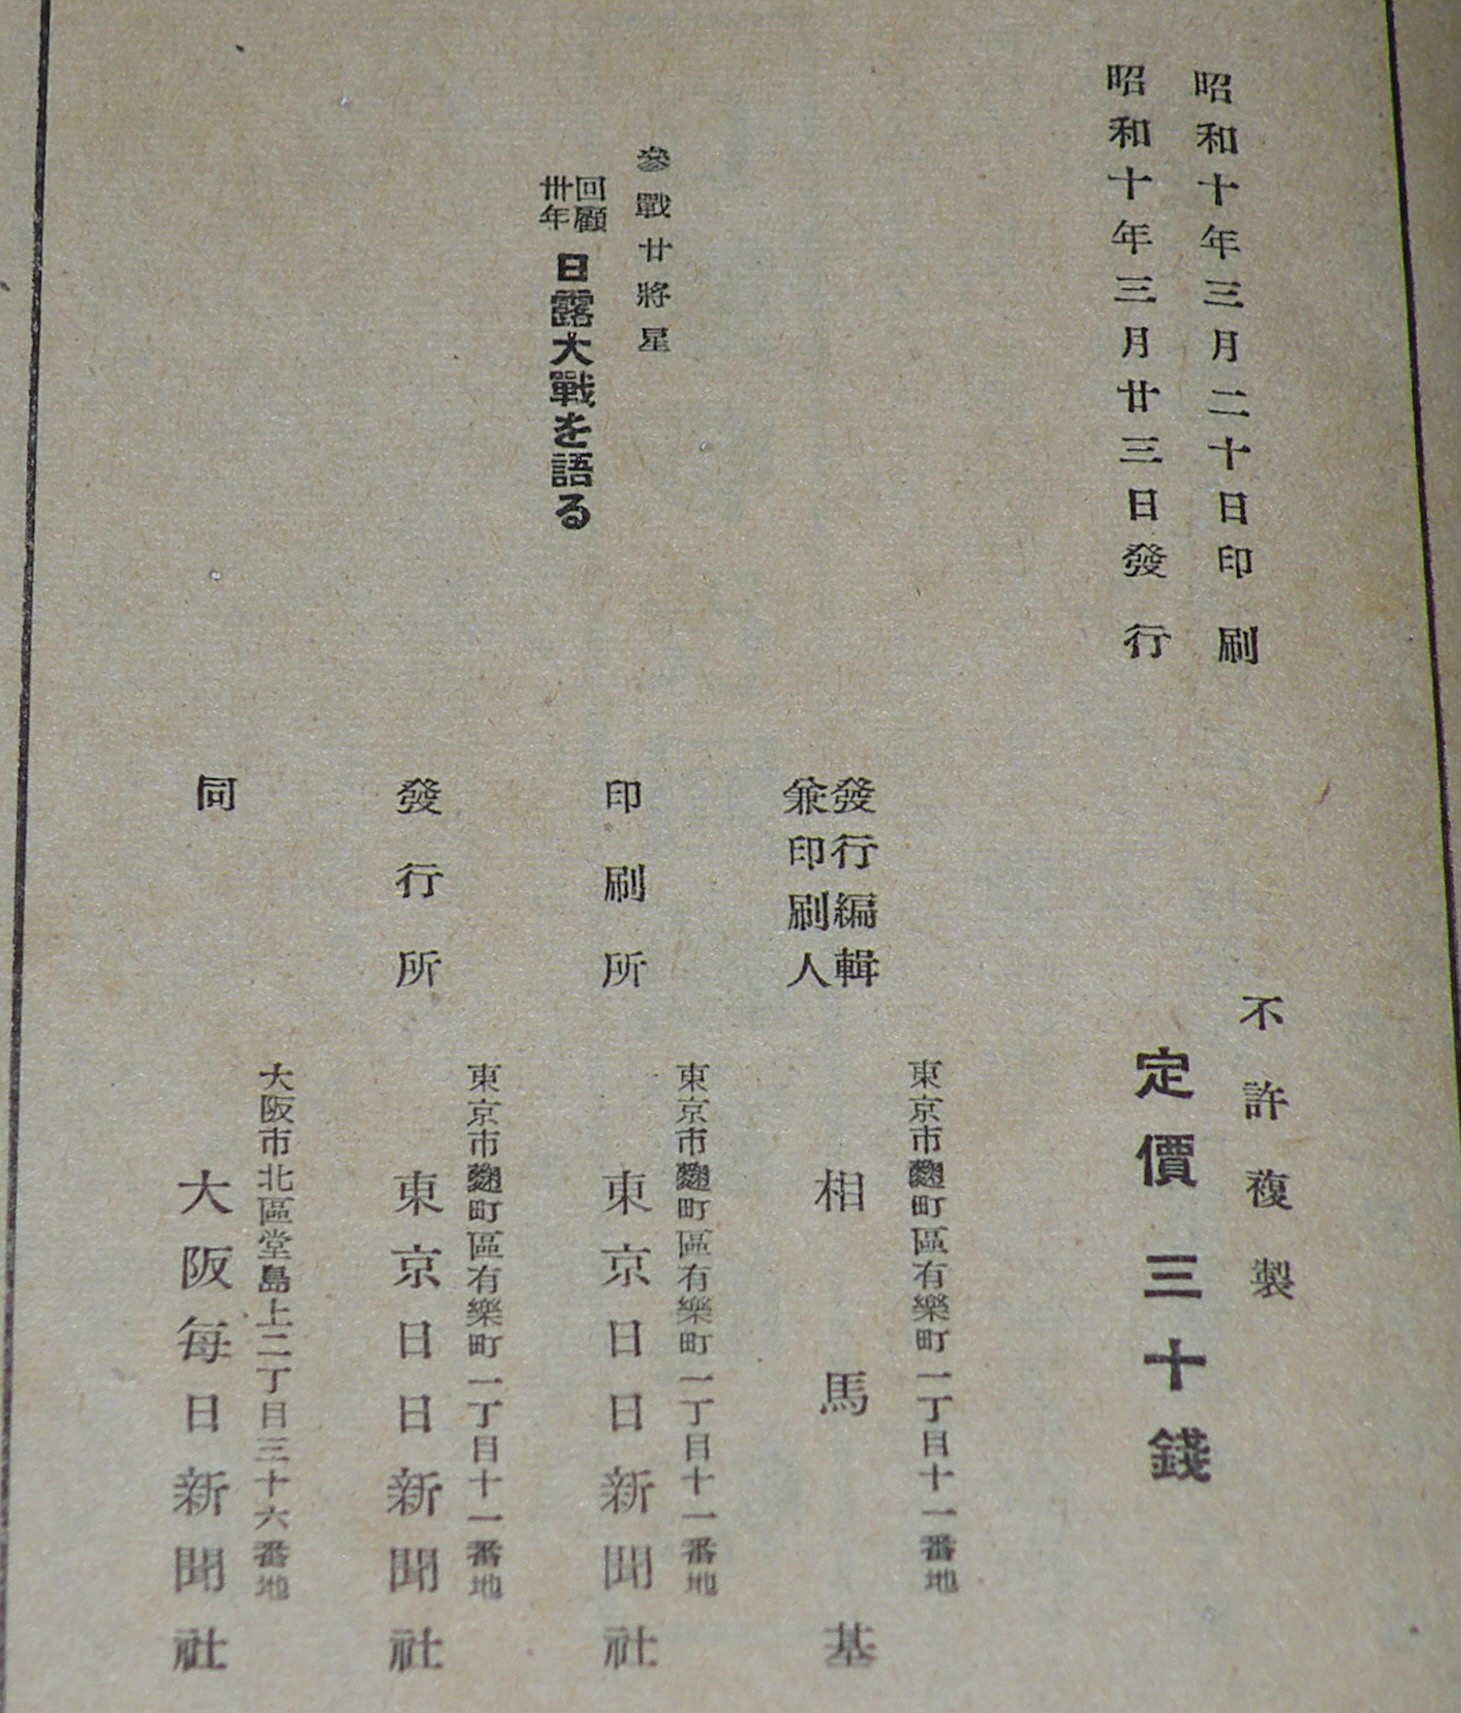 昭和十年三月二十日印刷
昭和十年三月廿三日發行
不許複製
定價三十錢
參戰廿將星
回顧
卅年
日露大戰を語る
發行編輯
兼印刷人
東京市麴町區有樂町一丁目十一番地
相馬基
印刷所
東京市麴町區有樂町一丁目十一番地
東京日日新聞社
發行所
東京市麴町區有樂町一丁目十一番地
東京日日新聞社
同
大阪市北區堂島上二丁目三十六番地
大阪每日新聞社